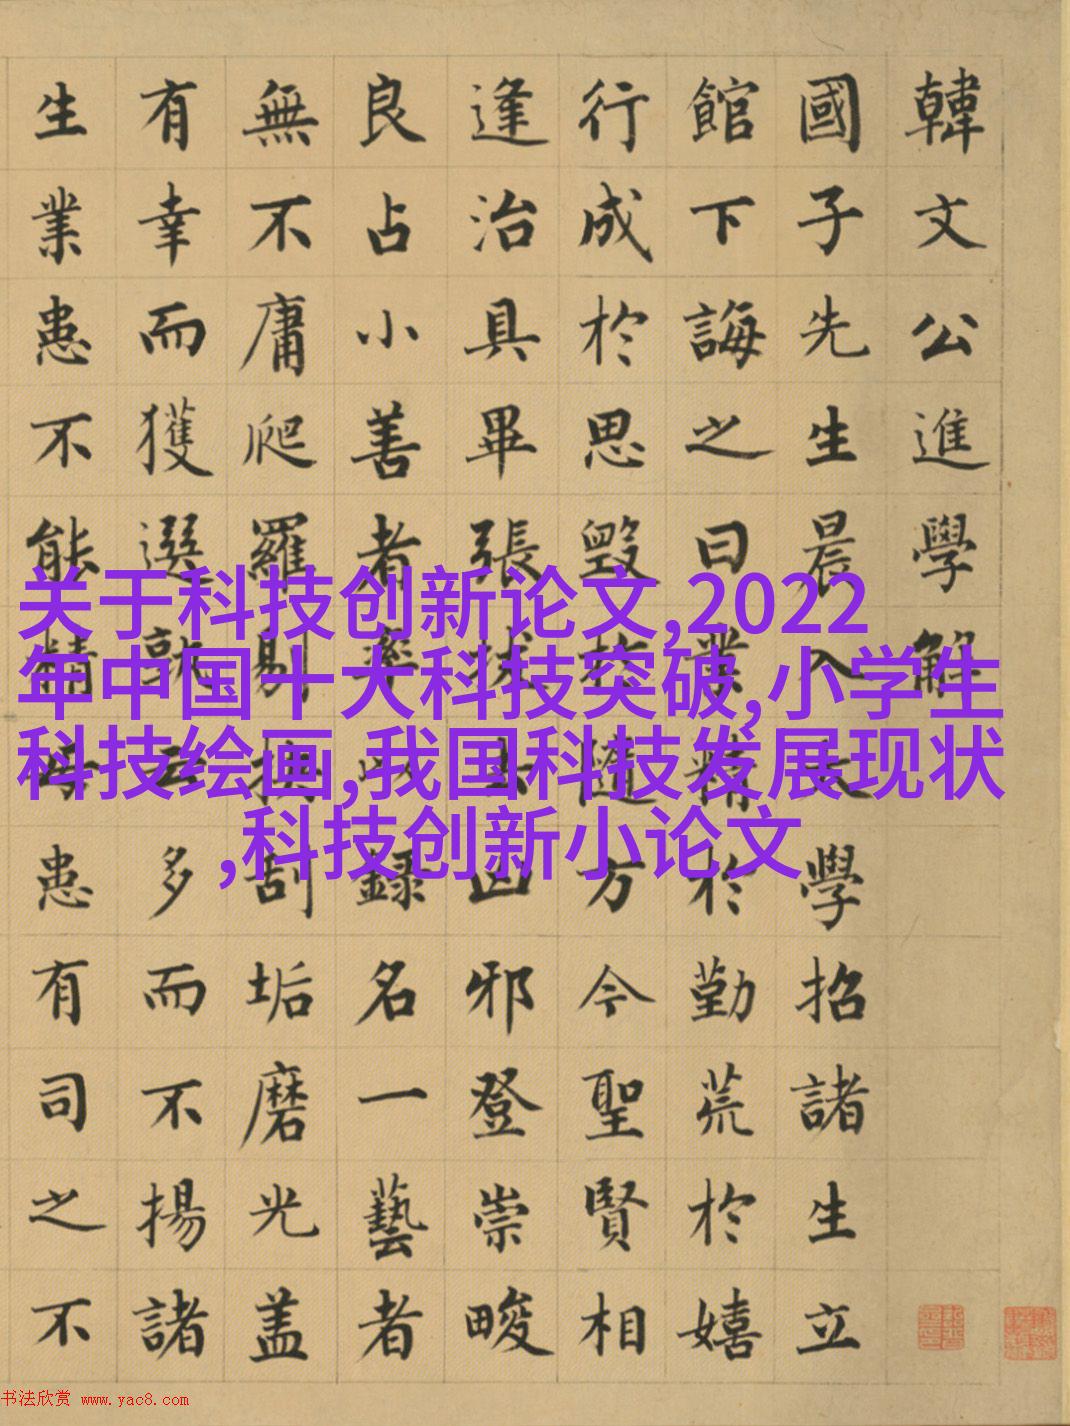 韓文公進學解
國子先生晨入太學招諸生立
館下誨之曰業精於勤荒於嬉
行成於思毀於隨方今聖賢相
逢治具畢張拔去凶邪登崇畯
良占小善者率以録名一藝者
無不庸爬羅剔抉刮垢磨光盖
有幸而獲選孰云多而不揚諸
生業患不能精患有司之不
关于科技创新论文,2022
年中国十大科技突破,小学生
科技绘画,我国科技发展现状
,科技创新小论文
书法欣赏 www.yac8.com